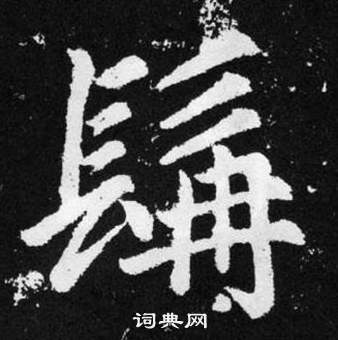 髯
词典网